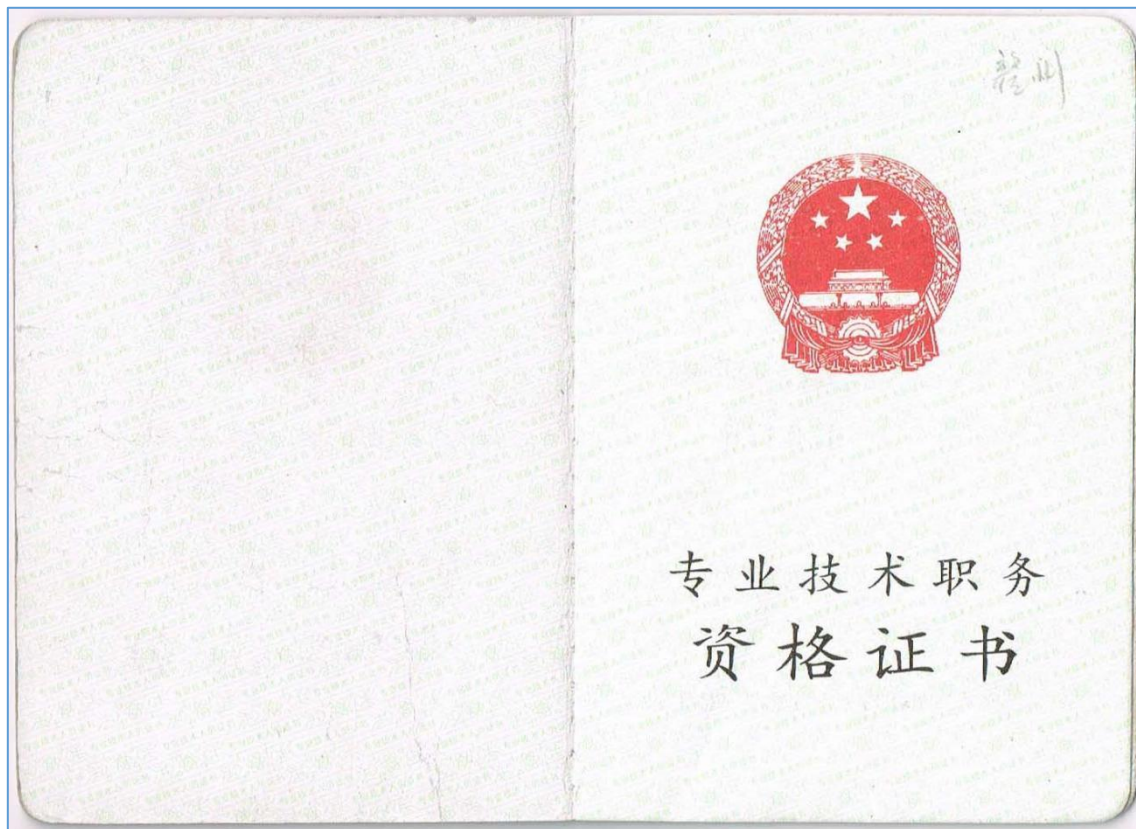 赣州
专业技术职务
资格证书